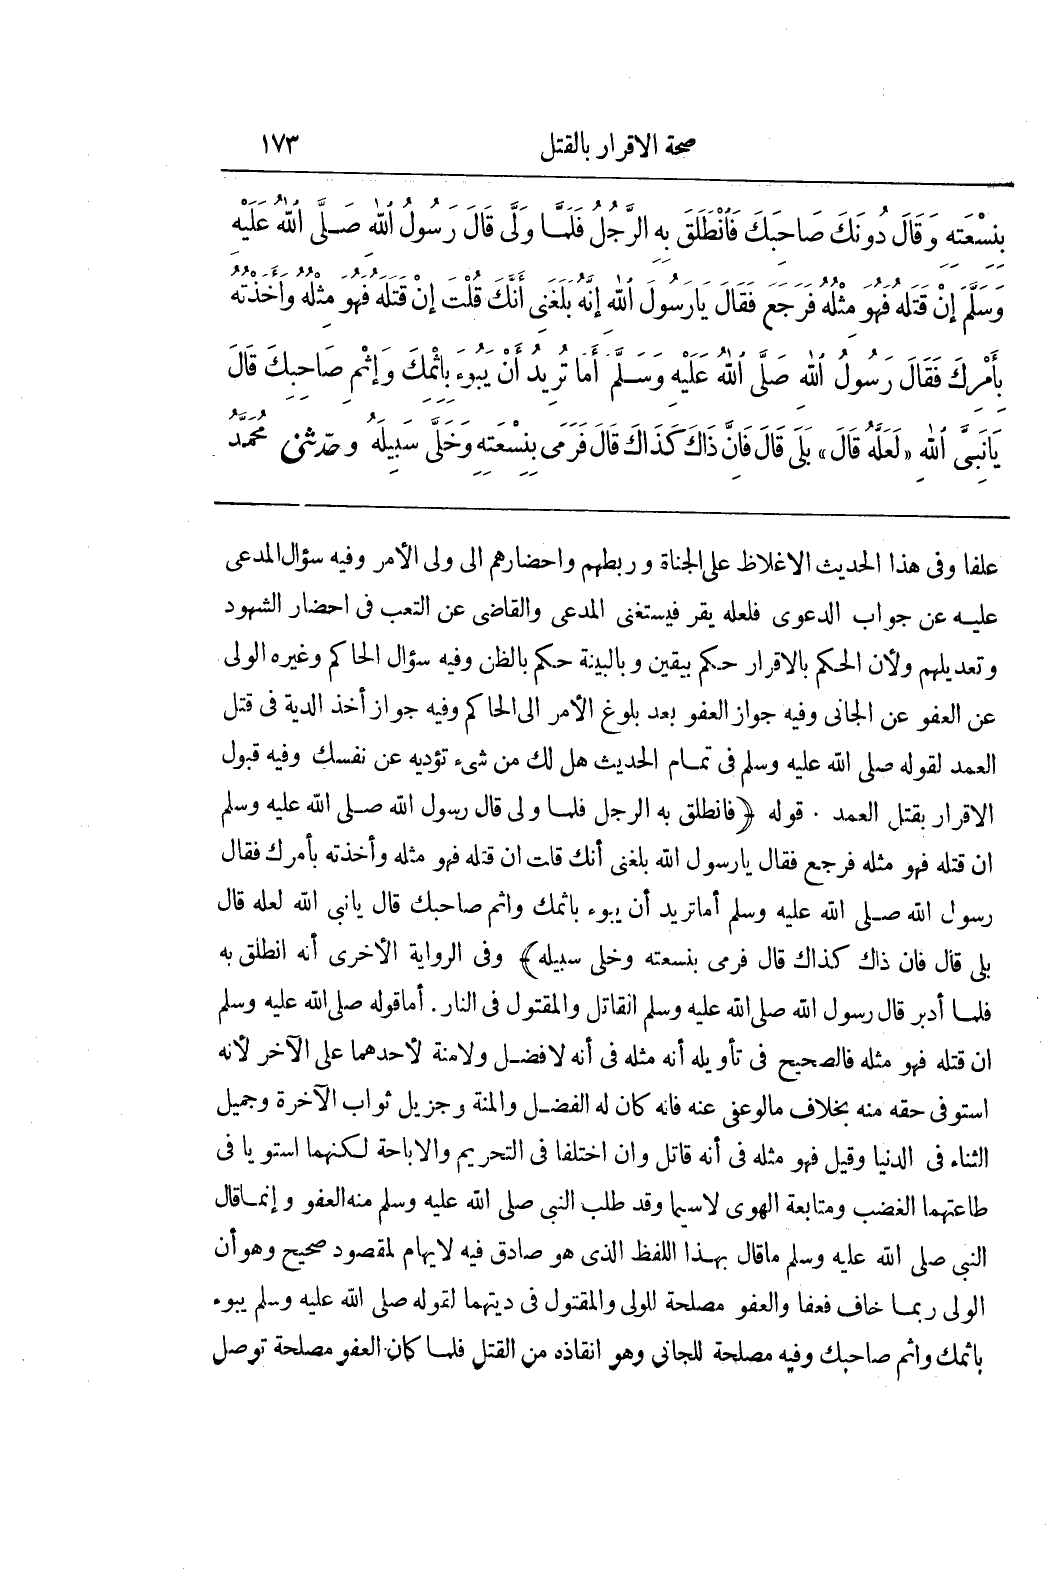 صحة الاقرار بالقتل ١٧٣
بِنِسْعَتِهِ وَقَالَ دُونَكَ صَاحِبَكَ فَانْطَلَقَ بِهِ الرَّجُلُ فَلَمَّا وَلَّى قَالَ رَسُولُ اللهِ صَلَّى اللهُ عَلَيْهِ
وَسَلَّمَ إِنْ قَتَلَهُ فَهُوَ مِثْلُهُ فَرَجَعَ فَقَالَ يَارَسُولَ اللهِ إِنَّهُ بَلَغَنِى أَنَّكَ قُلْتَ إِنْ قَتَلَهُ فَهُوَ مِثْلُهُ وَأَخَذْتُهُ
بِأَمْرِكَ فَقَالَ رَسُولُ اللهِ صَلَّى اللهُ عَلَيْهِ وَسَلَّمَ أَمَا تُرِيدُ أَنْ يَبُوءَ بِإِثْمِكَ وَإِثْمِ صَاحِبِكَ قَالَ
يَانَبِىَّ اللهِ «لَعَلَّهُ قَالَ» بَلَى قَالَ فَانَّ ذَاكَ كَذَاكَ قَالَ فَرَمَى بِنِسْعَتِهِ وَخَلَّى سَبِيلَهُ وحَدَّثَنِى مُحَمَّدُ
علفا وفى هذا الحديث الاغلاظ على الجناة وربطهم واحضارهم الى ولى الأمر وفيه سؤال المدعى
عليه عن جواب الدعوى فلعله يقر فيستغنى المدعى والقاضى عن التعب فى احضار الشهود
وتعديلهم ولأن الحكم بالاقرار حكم بيقين وبالبينة حكم بالظن وفيه سؤال الحاكم وغيره الولى
عن العفو عن الجانى وفيه جواز العفو بعد بلوغ الأمر الى الحاكم وفيه جواز أخذ الدية فى قتل
العمد لقوله صلى الله عليه وسلم فى تمام الحديث هل لك من شىء تؤديه عن نفسك وفيه قبول
الاقرار بقتل العمد . قوله ﴿فانطلق به الرجل فلما ولى قال رسول الله صلى الله عليه وسلم
ان قتله فهو مثله فرجع فقال يارسول الله بلغنى أنك قلت ان قتله فهو مثله وأخذته بأمرك فقال
رسول الله صلى الله عليه وسلم أماتريد أن يبوء باثمك واثم صاحبك قال يانبى الله لعله قال
بلى قال فان ذاك كذاك قال فرمى بنسعته وخلى سبيله﴾ وفى الرواية الأخرى أنه انطلق به
فلما أدبر قال رسول الله صلى الله عليه وسلم القاتل والمقتول فى النار . أماقوله صلى الله عليه وسلم
ان قتله فهو مثله فالصحيح فى تأويله أنه مثله فى أنه لافضل ولامنة لأحدهما على الآخر لأنه
استوفى حقه منه بخلاف مالوعفى عنه فانه كان له الفضل والمنة وجزيل ثواب الآخرة وجميل
الثناء فى الدنيا وقيل فهو مثله فى أنه قاتل وان اختلفا فى التحريم والاباحة لكنهما استويا فى
طاعتهما الغضب ومتابعة الهوى لاسيما وقد طلب النبى صلى الله عليه وسلم منه العفو وإنماقال
النبى صلى الله عليه وسلم ماقال بهذا اللفظ الذى هو صادق فيه لايهام لمقصود صحيح وهو أن
الولى ربما خاف فعفا والعفو مصلحة للولى والمقتول فى ديتهما لقوله صلى الله عليه وسلم يبوء
باثمك واثم صاحبك وفيه مصلحة للجانى وهو انقاذه من القتل فلما كان العفو مصلحة توصل